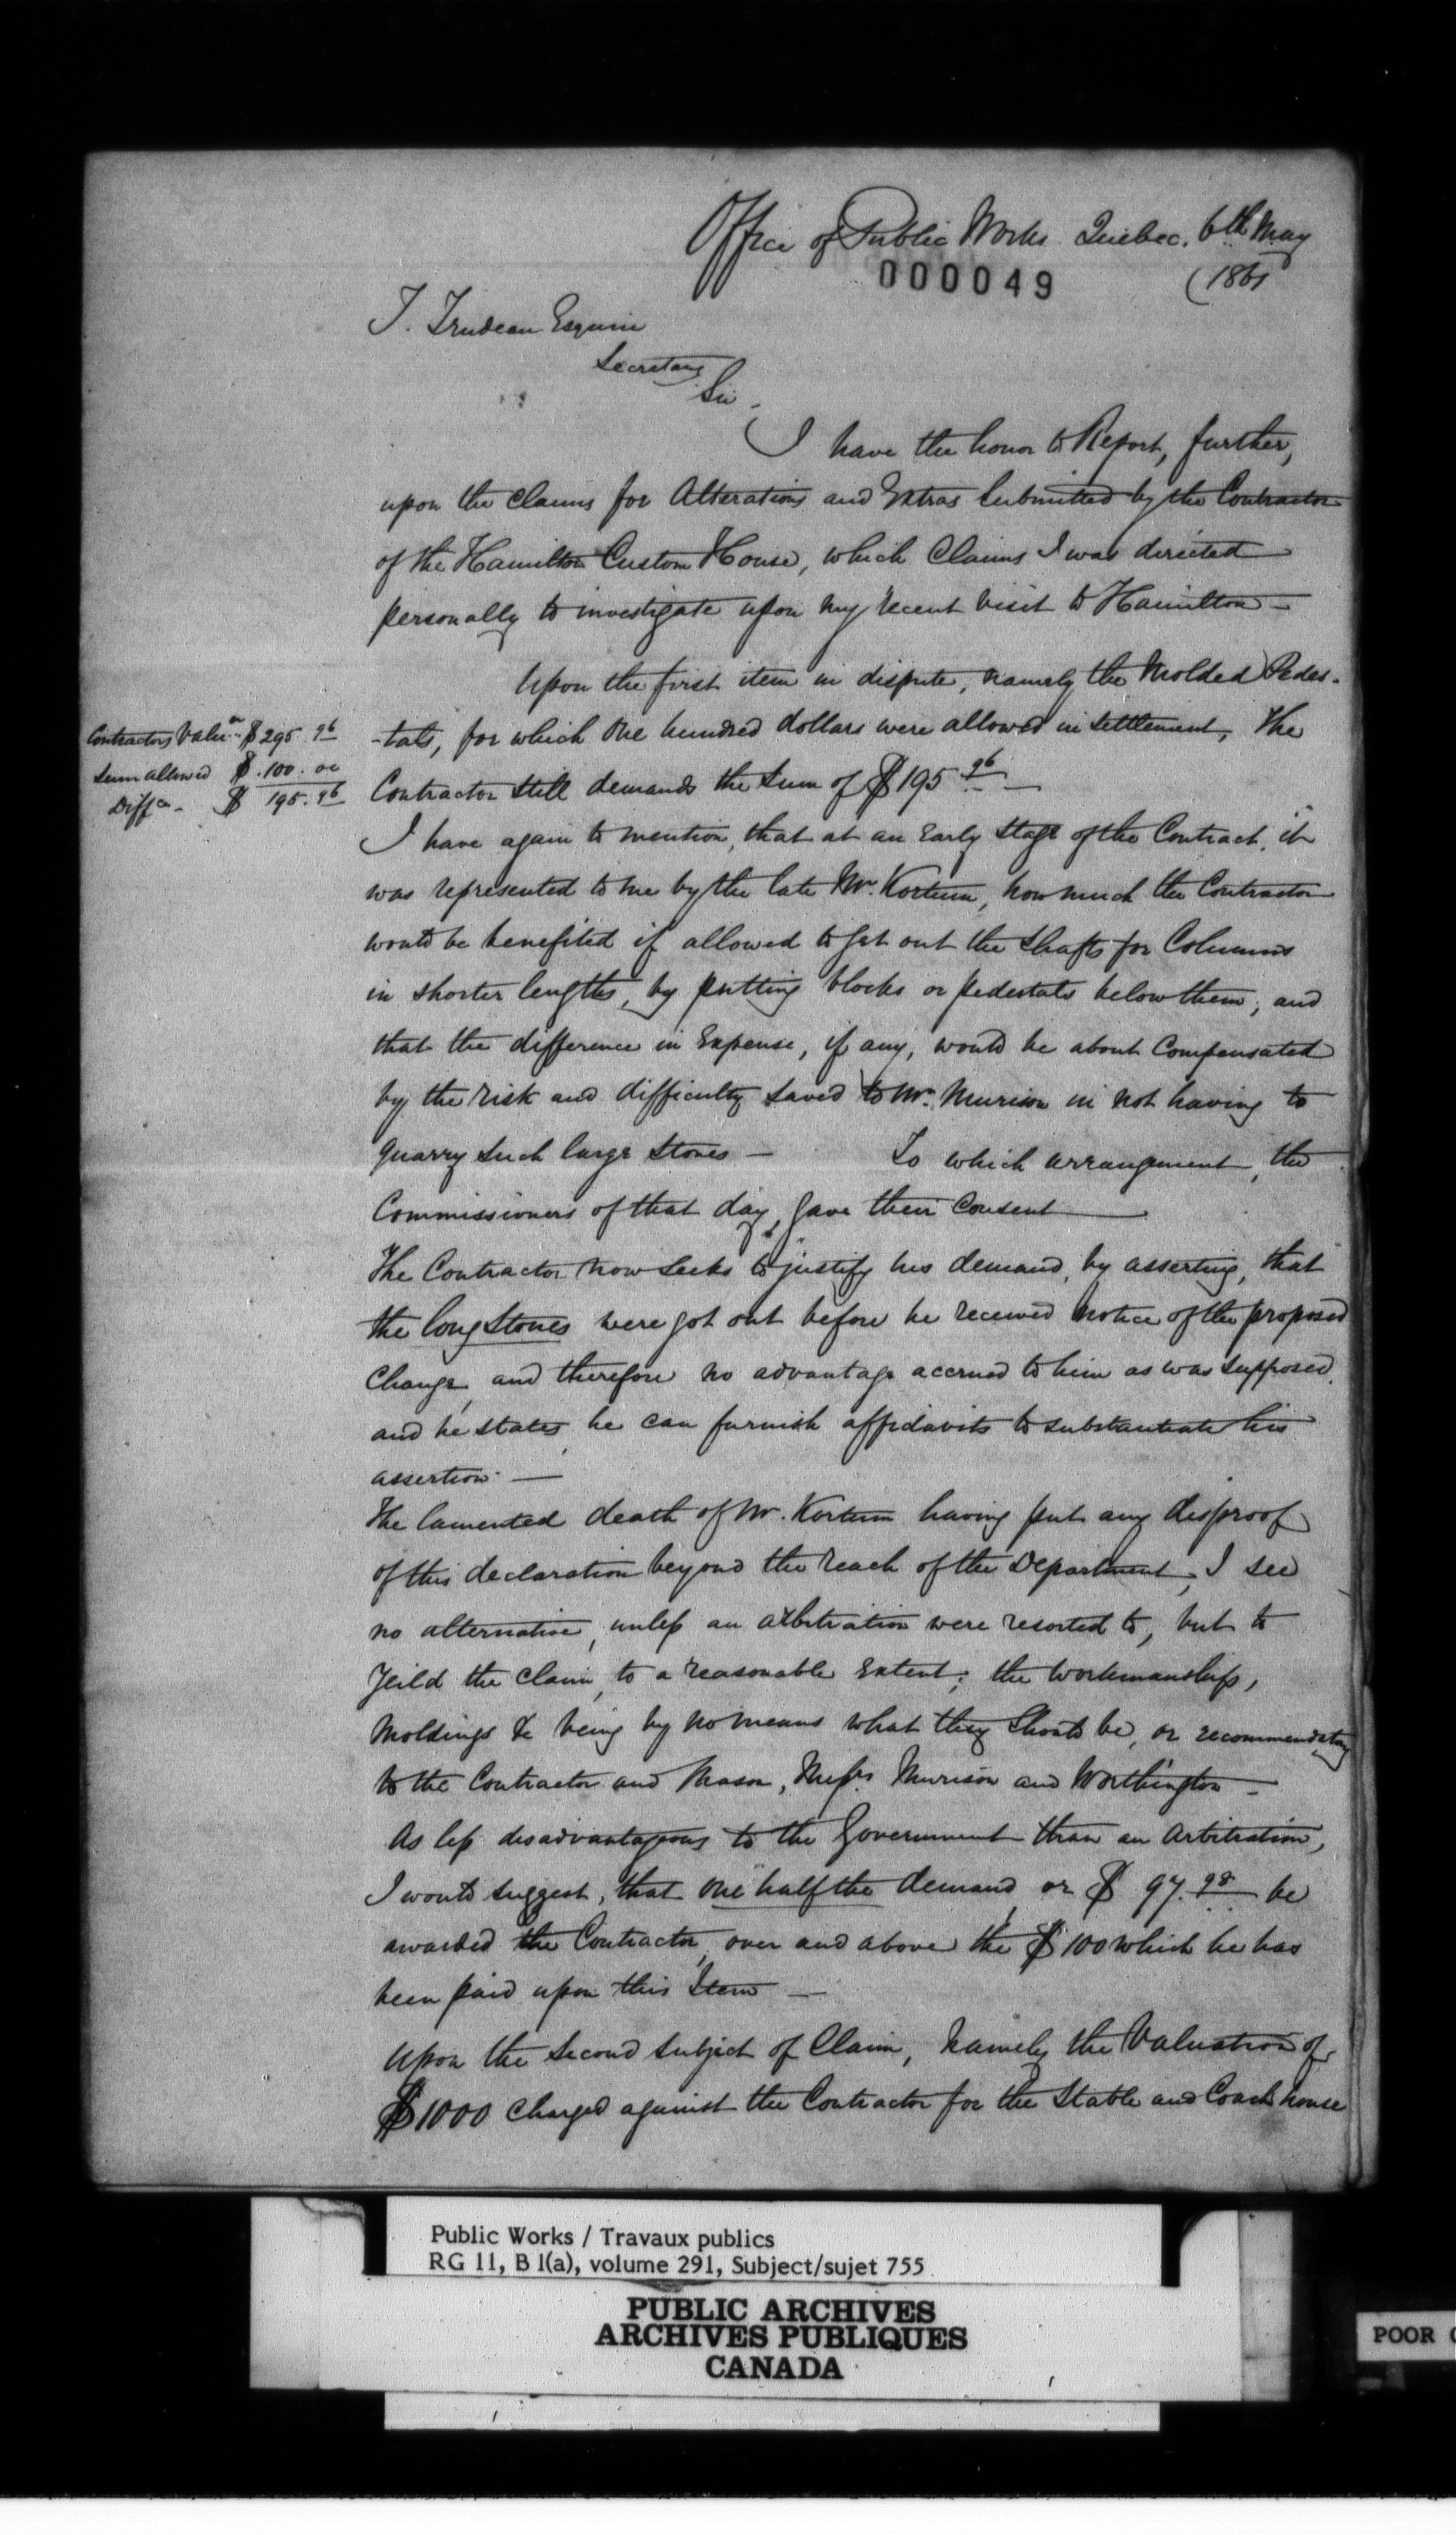 Office of Public Works. Quebec. 6th May
000049
(1861
T. Trudeau Esquire
Secretary
Sir,
I have the honor to Report, further,
upon the Claims for Alterations and Extras submitted by the Contractor
of the Hamilton Custom House, which Claims I was directed
personally to investigate upon my recent visit to Hamilton —
Upon the first item in dispute, namely the Molded Pedes-
-tals, for which One hundred dollars were allowed in settlement, the
Contractor still demands the sum of $195.96 —
Contractors Valun $295.96
Sum allowed $.100.00
Diffce - $ 195.96
I have again to mention, that at an Early stage of the Contract, it
was represented to me by the late Mr. Kortum, how much the Contractor
would be benefited if allowed to get out the shafts for Columns
in shorter lengths, by putting blocks or pedestals below them; and
that the difference in Expense, if any, would be about Compensated
by the risk and difficulty saved to Mr. Murison in not having to
quarry such large stones — To which arrangement, the
Commissioners of that day, gave their Consent —
The Contractor now seeks to justify his demand, by asserting, that
the long stones were got out before he received notice of the proposed
Change, and therefore no advantage accrued to him as was supposed,
and he states, he can furnish affidavits to substantiate his
assertion. —
The lamented death of Mr. Kortum having put any disproof
of this declaration beyond the reach of the Department, I see
no alternative, unless an arbitration were resorted to, but to
Yeild the Claim, to a reasonable Extent; the Workmanship,
Moldings &c being by no means what they should be, or recommendatory
to the Contractor and Mason, Messrs Murison and Worthington —
As less disadvantageous to the Government than an Arbitration,
I would suggest, that one half the demand, or $ 97.98 be
awarded the Contractor, over and above the $100 which he has
been paid upon this Item —
Upon the second subject of Claim, namely the Valuation of
$1000 Charged against the Contractor for the Stable and Coach house
Public Works / Travaux publics
RG 11, B 1(a), volume 291, Subject/sujet 755
PUBLIC ARCHIVES
ARCHIVES PUBLIQUES
CANADA
POOR